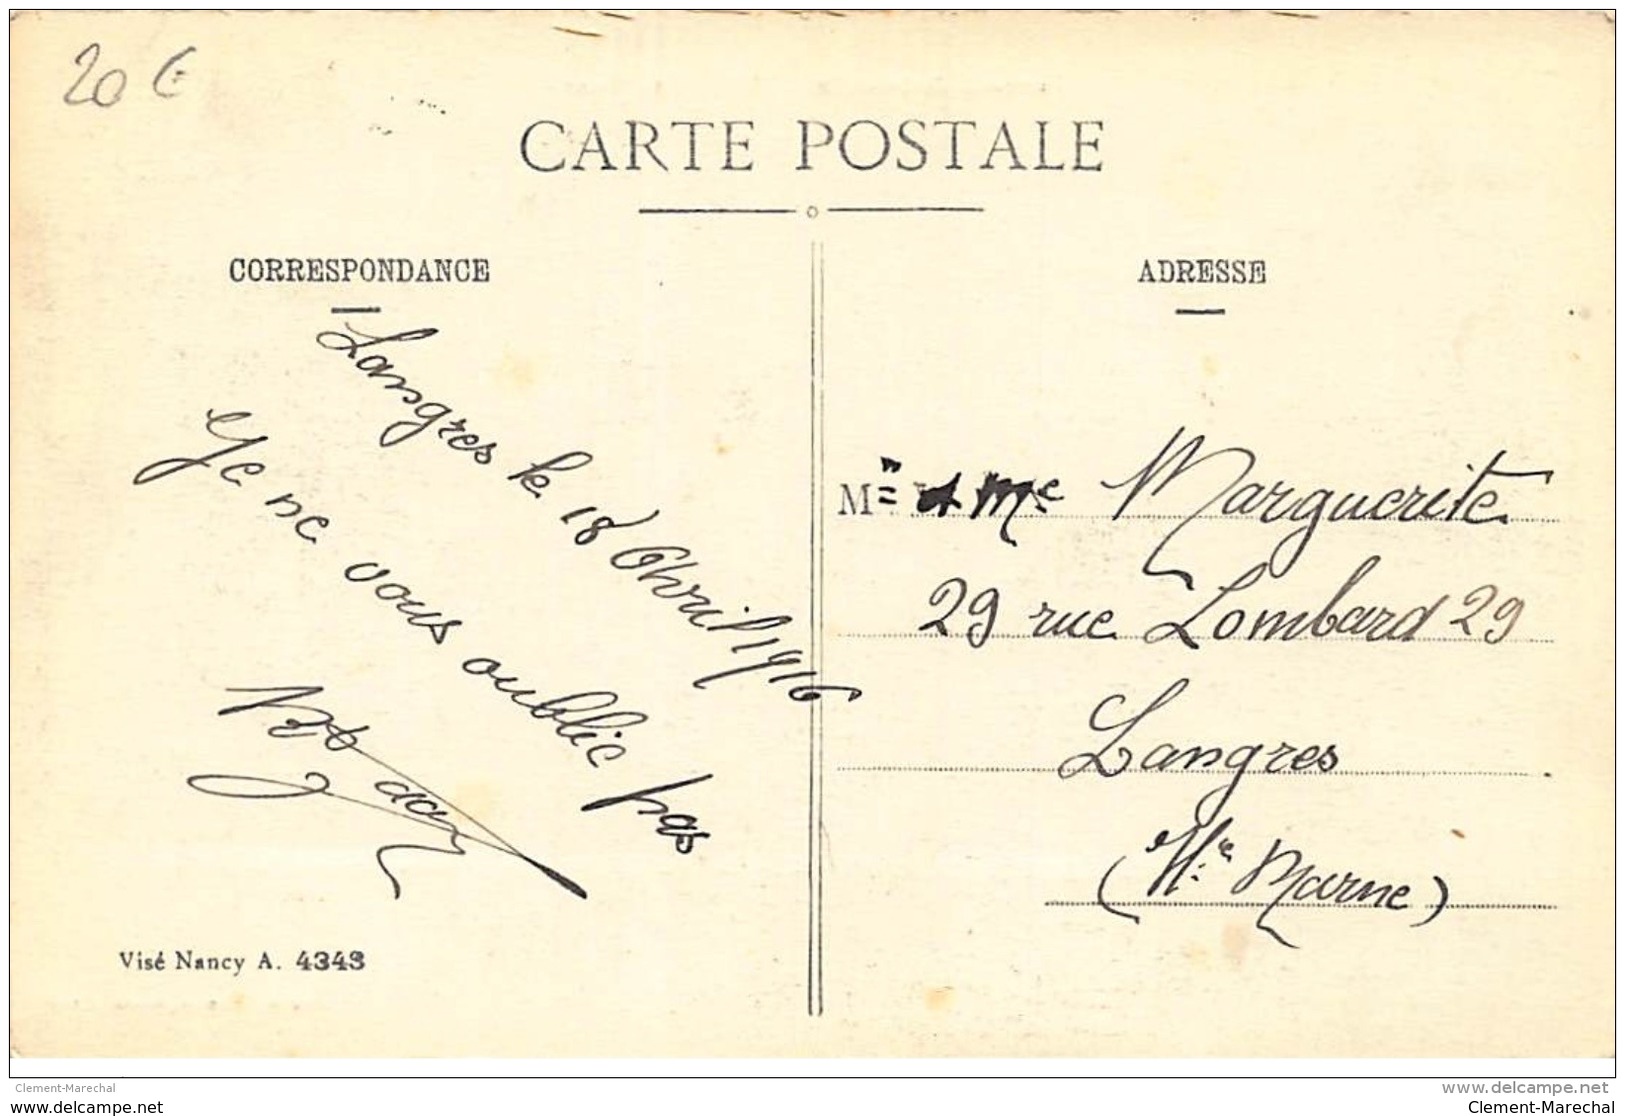 20 €
CARTE POSTALE
CORRESPONDANCE
Langres le 18 Avril 1916
Je ne vous oublie pas
Visé Nancy A. 4343
ADRESSE
M" & Me Marguerite
29 rue Lombard 29
Langres
(Hte Marne)
Clement-Marechal
www.delcampe.net
Clement-Marechal
Clement-Marechal
Clement-Marechal